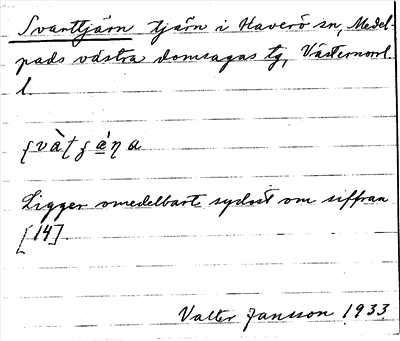 Svarttjärn tjärn i Haverö sn, Medel-
pads västra domsagas tg, Västernorrl.
l.
Ligger omedelbart sydost om siffran
[14].
Valter Jansson 1933